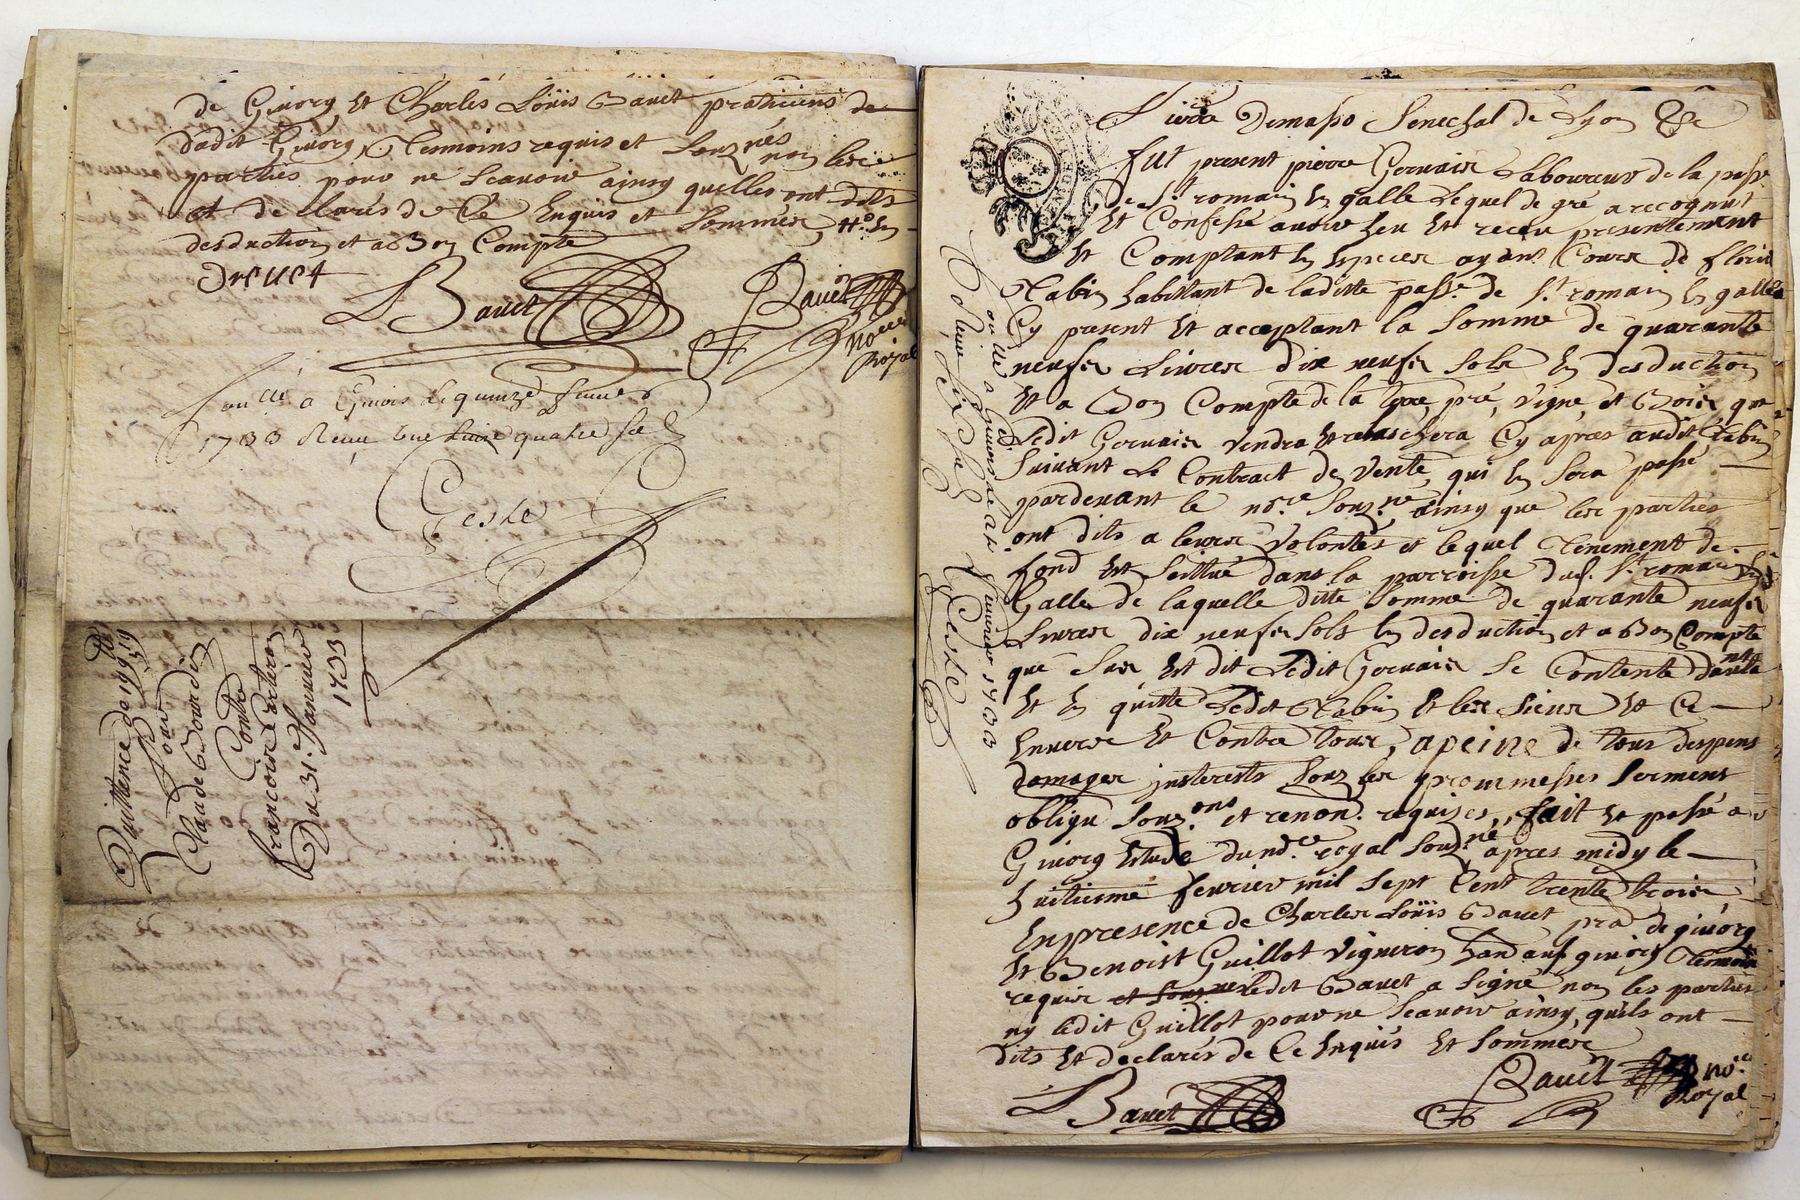 de Givorg, et Charles Loüis Bauet praticiens de
dudit Givorg, Temoins requis et Souz.nés non les
parties pour ne Scauoir ainsy quelles ont dits
et declarés de Ce Enquis et Sommés, #.o En
desduction et a Bon Compte
Drevet
Bauet
Bauet no.re
Royal
Con.llé a Givors le quinze feurier
1733 Receu une liure quatre sols
Geste
Quittance de 19 lt 19 s
Pour
Claude Bourdin
Contre
francoise
Du 31.e Januier
1733
Demaso Senechal de Lyon &c
fut present pierre Geruais Laboureur de la pass.e
De S.t romain En galle Lequel de gré a recognut
Et Confessé auoir heu Et receu presentement
Et Comptant En Especes ayant Cours de fleury
Rabin habittant de laditte pass.e de S.t romain En galle
Cy present Et acceptant la Somme de quarante
neufs Liures dix neufs Sols En desduction
Et a Bon Compte de la terre, pré, vigne, et Bois que
Ledit Geruais vendra Et Cy apres audit Rabin
Suivant Le Contract de vente, qui En Sera passé
pardeuant le no.re Souz.né ainsy que les parties
ont dits a leurs Volontés et lequel Tenement de
fond Est Scittué dans la parroisse dud. S.t romain En
Galle de laquelle ditte Somme de quarante neufs
Liures dix neufs Sols En desduction et a Bon Compte
que Sus Est dit Ledit Geruais Se Contente
Et En quitte Ledit Rabin Et les Siens Et Ce
Enuers Et Contre tous, a peine de tous despens
domages insterests Souz les prommesses Serment
obligu Souz.ons et renon.d requises, fait Et passé a
Givorg Estude du no.re royal Souz.né apres midy le
huitiesme feurier mil Sept Cent trente trois,
En presence de Charles Loüis Bauet pra.n de givorg
Et Benoist Guillot vigneron hand audt givorg Temoins
requis et Souz.nés ledit Bauet a Signé non les parties
ny ledit Guillot pour ne Scauoir ainsy, quils ont
dits Et declarés de Ce Enquis Et Sommés
Bauet
Bauet no.re
Royal
Con.llé a Givors le Feurier 1733
Receu six sols Geste